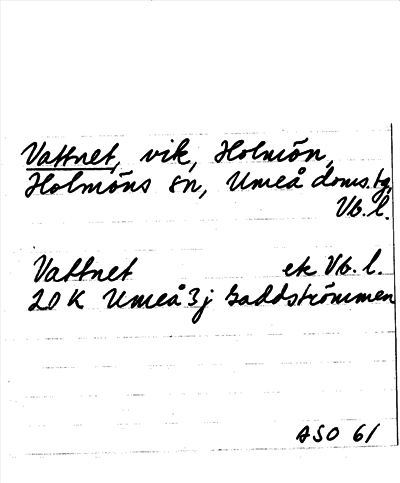 Vattnet, vik, Holmön,
Holmöns sn, Umeå doms.tg,
Vb. l.
Vattnet ek Vb. l.
20 K Umeå 3j Gaddströmmen
ASO 61